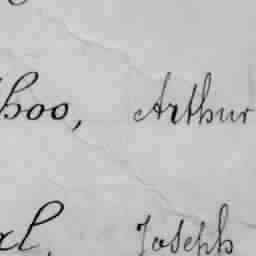 hoo, Arthur
l, Joseph